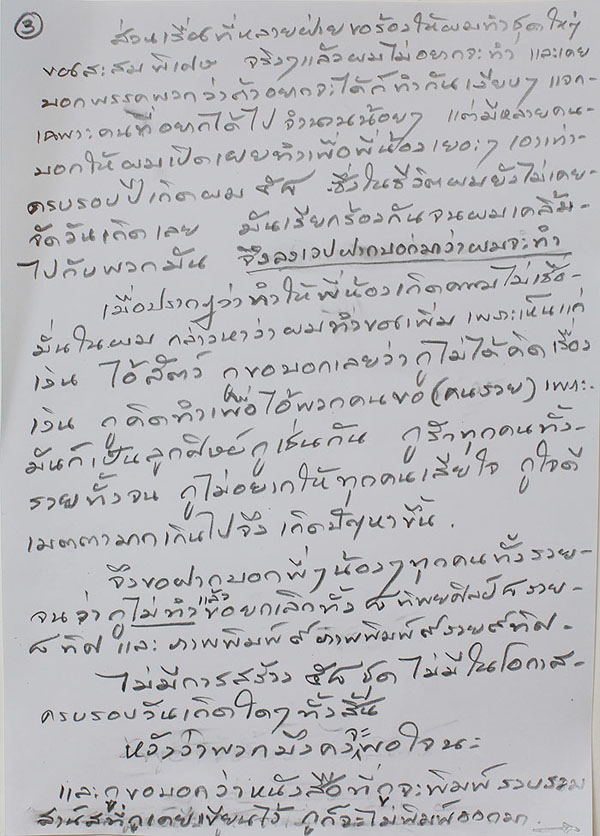 ③
ส่วนเรื่องที่หลายฝ่ายขอร้องให้ผมทำชุดใหญ่
ขนสะสมพิเศษ จริงๆแล้วผมไม่อยากจะทำ และเคย
บอกพรรคพวกว่าถ้าอยากจะได้ก็ทำกันเงียบๆ แจก-
เฉพาะคนที่อยากได้ไป จำนวนน้อยๆ แต่มีหลายคน-
บอกให้ผมเปิดเผยทำเพื่อพี่น้องเยอะๆ เอาเท่า-
ครบรอบปีเกิดผม ๕๘ ซึ่งในชีวิตผมยังไม่เคย-
จัดวันเกิดเลย มันเรียกร้องกันจนผมเคลิ้ม-
ไปกับพวกมัน จึงลงเวปฝากบอกมาว่าผมจะทำ
เมื่อปรากฏว่าทำให้พี่น้องเกิดความไม่เชื่อ-
มั่นในผม กล่าวหาว่าผมทำขนเพิ่ม เพราะเห็นแก่
เงิน ไอ้สัตว์ กูขอบอกเลยว่า กูไม่ได้คิดเรื่อง
เงิน กูคิดทำเพื่อไอ้พวกคนขอ (คนรวย) เพราะ-
มันก็เป็นลูกศิษย์กูเช่นกัน กูรักทุกคนทั้ง-
รวยทั้งจน กูไม่อยากให้ทุกคนเสียใจ กูใจดี
เมตตามากเกินไปจึงเกิดปัญหาขึ้น.
จึงขอฝากบอกพี่ๆน้องๆทุกคนทั้งรวย-
จนว่า กูไม่ทำแล้ว ขอยกเลิกทั้ง ๘ ทิพยศิลป์ ๘ รวย-
๘ ทิศ และ ภาพพิมพ์ ๙ ภาพพิมพ์ ๙ รวย ๙ ทิศ-
ไม่มีการสร้าง ๕๘ ชุด ไม่มีในโอกาส-
ครบรอบวันเกิดใดๆทั้งสิ้น
หวังว่าพวกมึงคงจะพอใจนะ
และกูขอบอกว่าหนังสือที่กูจะพิมพ์รวบรวม
สาน์สที่กูเคยเขียนไว้ กูก็จะไม่พิมพ์ออกมา